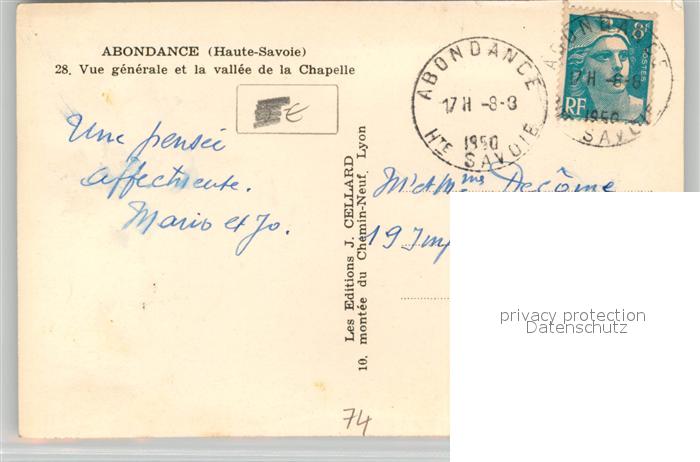 ABONDANCE (Haute-Savoie)
28. Vue générale et la vallée de la Chapelle
€
Une pensée
affectueuse.
Mario et Jo.
Les Editions J. CELLARD
10, montée du Chemin-Neuf, Lyon
ABONDANCE
17H -8-8
1950
HTE SAVOIE
8F
POSTES
RF
ABONDANCE
17H -8-8
1950
SAVOIE
M et Mme
19 Imp
74
privacy protection
Datenschutz